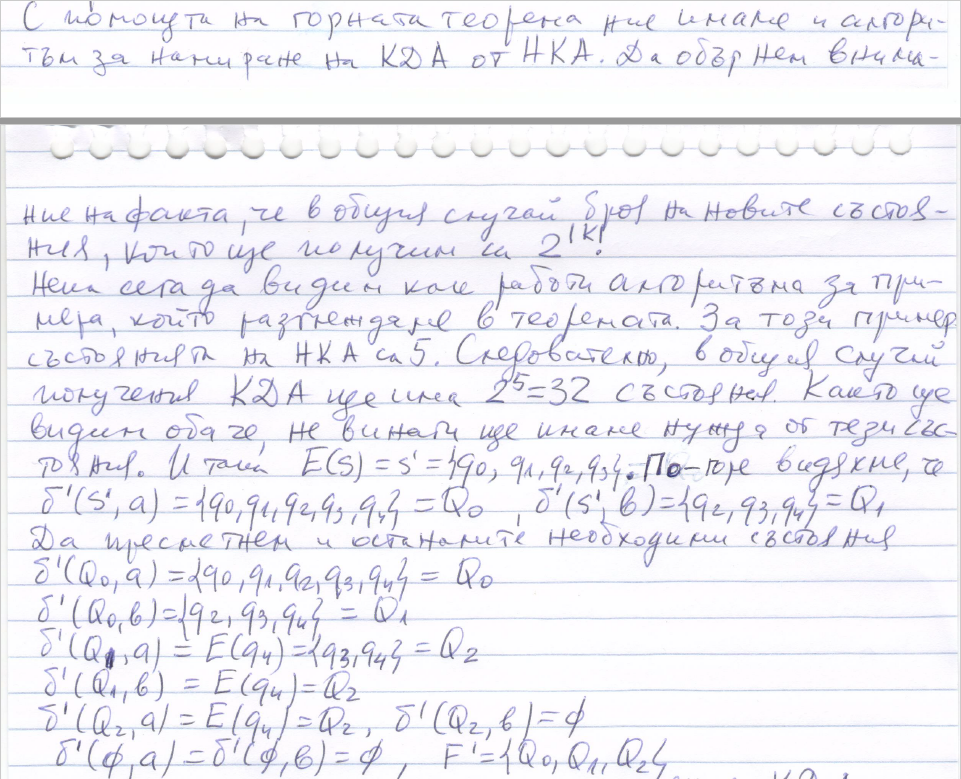 С помощта на горната теорема ние имаме и алгори-
тъм за намиране на КДА от НКА. Да обърнем внима-
ние на факта, че в общия случай броя на новите състоя-
ния, които ще получим са 2^|K|!
Нека сега да видим как работи алгоритъма за при-
мера, който разглеждаме в теоремата. За този пример
състоянията на НКА са 5. Следователно, в общия случай
получения КДА ще има 2^5=32 състояния. Както ще
видим обаче, не винаги ще имаме нужда от тези със-
тояния. И така E(S) = S' = {q0, q1, q2, q3}. По-горе видяхме, че
δ'(S', a) = {q0, q1, q2, q3, q4} = Q0, δ'(S', в) = {q2, q3, q4} = Q1
Да пресметнем и останалите необходими състояния
δ'(Q0, a) = {q0, q1, q2, q3, q4} = Q0
δ'(Q0, в) = {q2, q3, q4} = Q1
δ'(Q1, a) = E(q4) = {q3, q4} = Q2
δ'(Q1, в) = E(q4) = Q2
δ'(Q2, a) = E(q4) = Q2, δ'(Q2, в) = ϕ
δ'(ϕ, a) = δ'(ϕ, в) = ϕ, F' = {Q0, Q1, Q2}